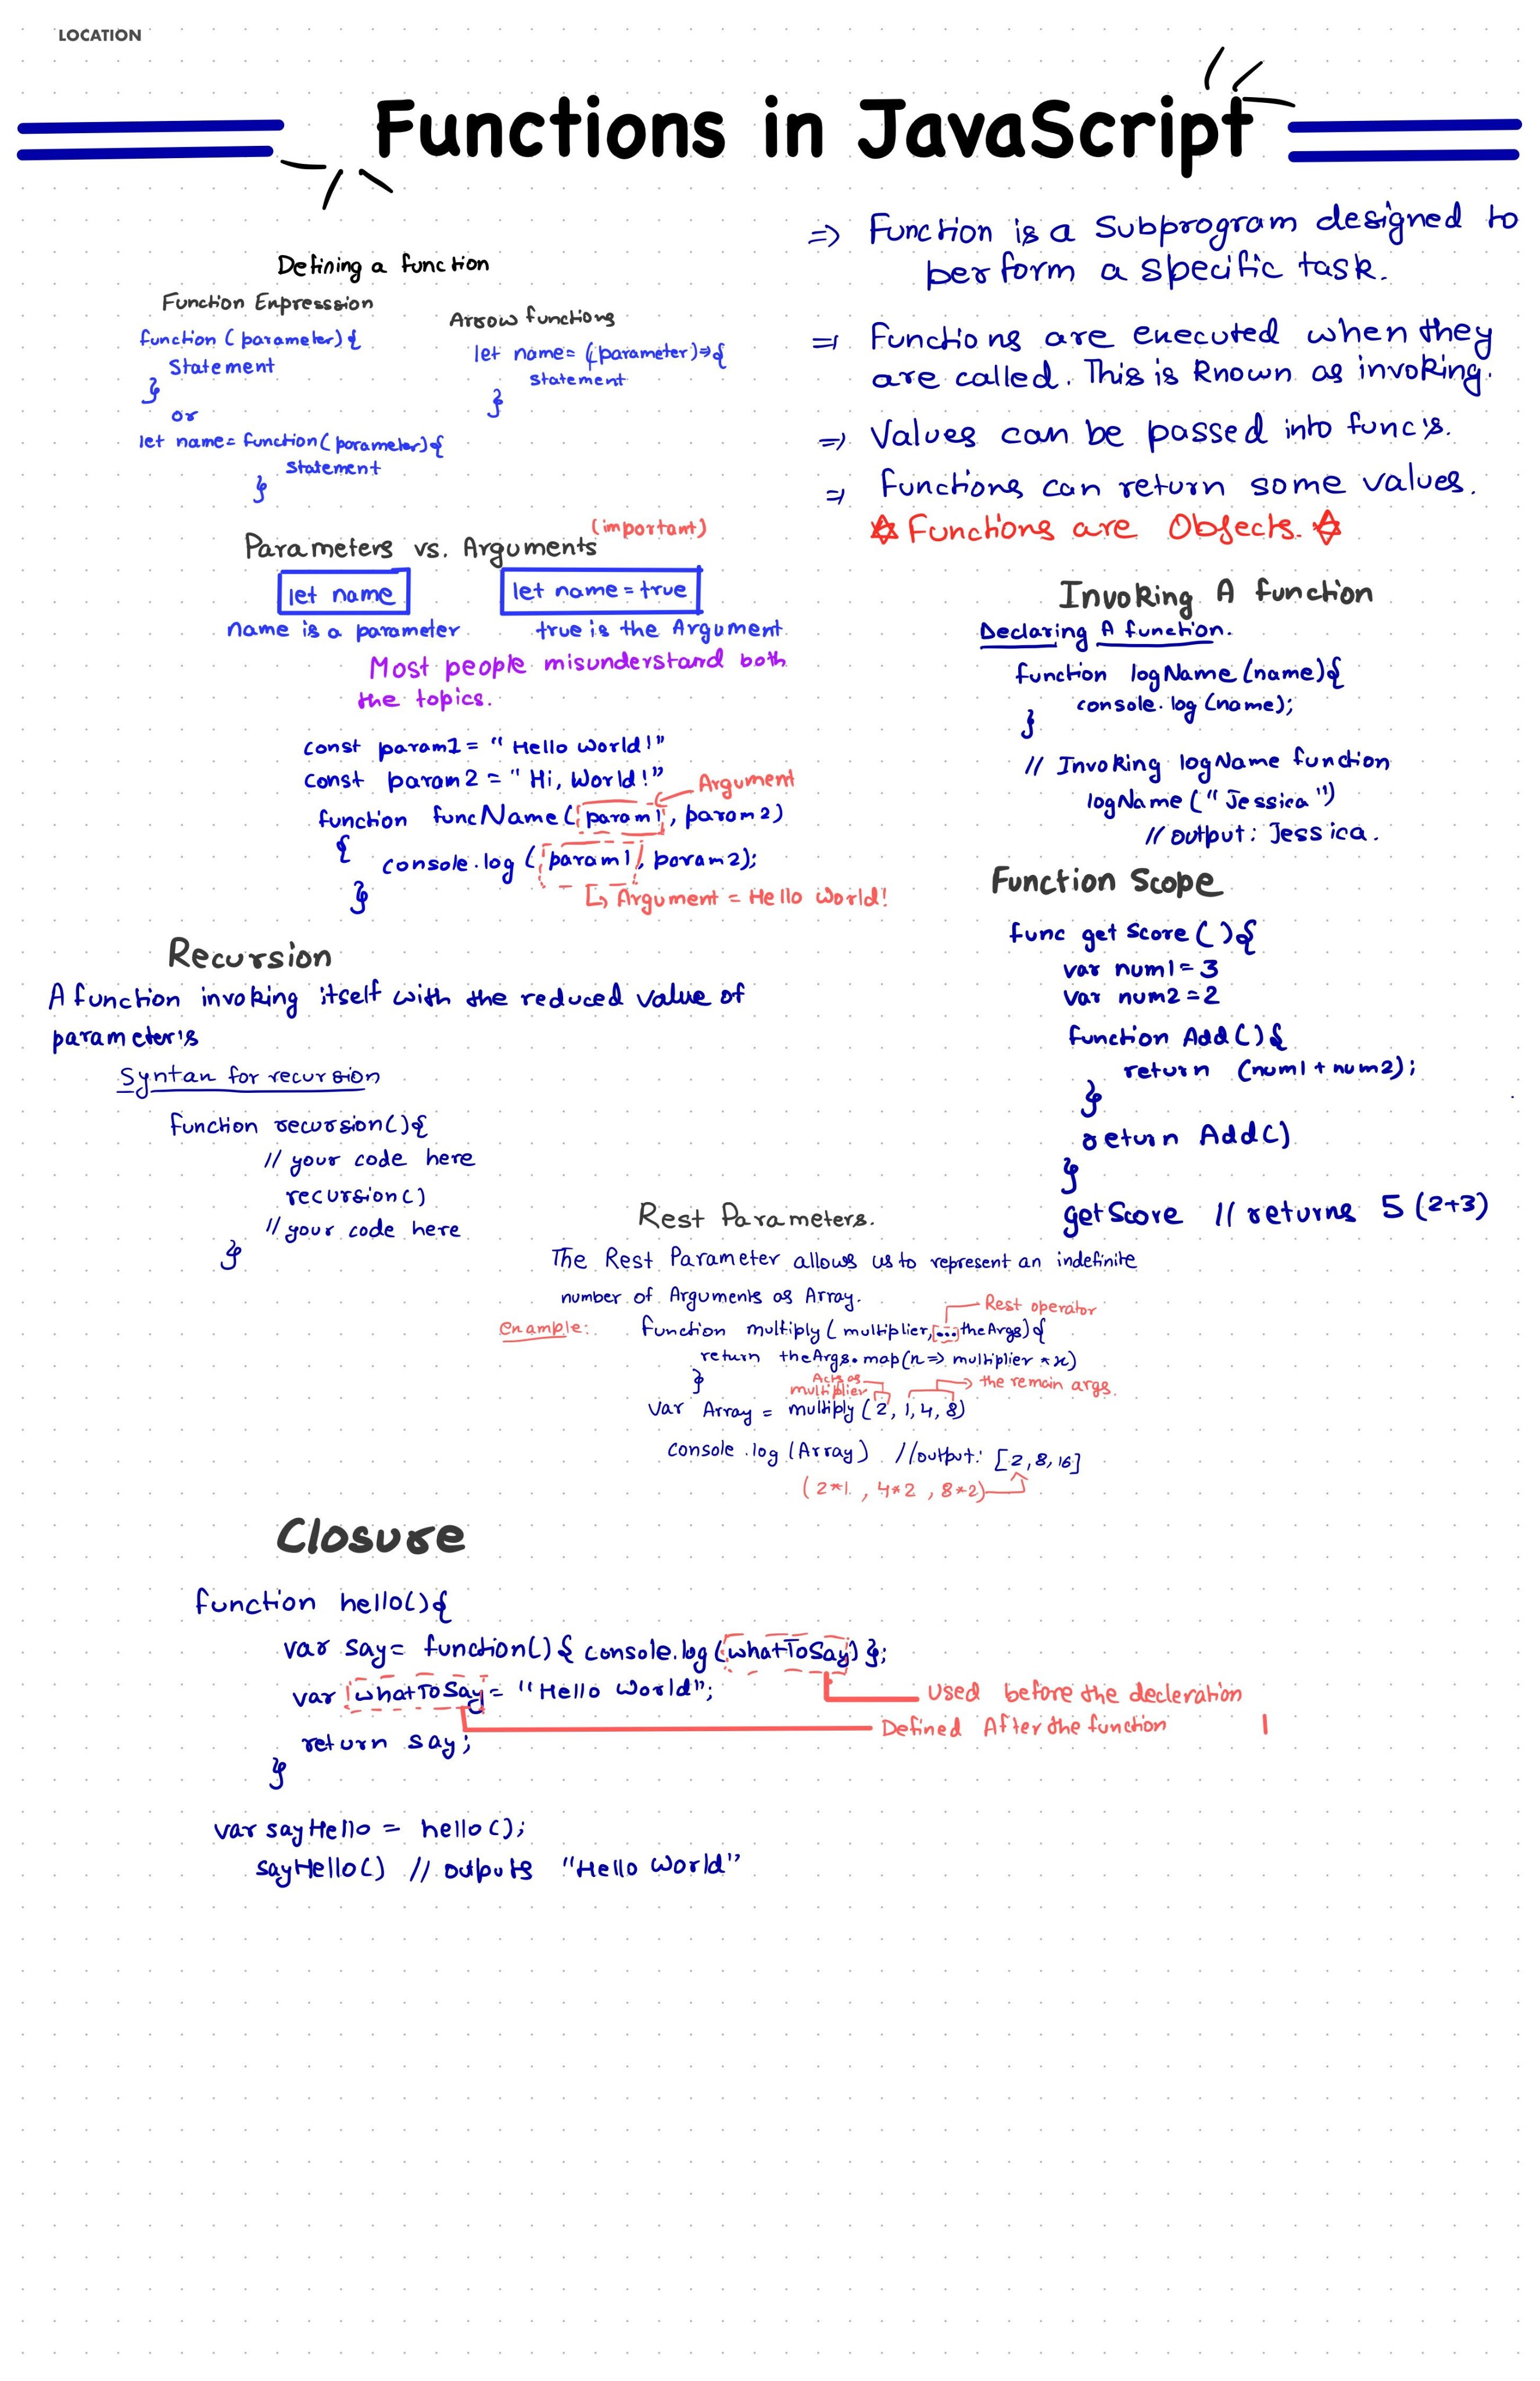 LOCATION
Functions in JavaScript
⇒ Function is a Subprogram designed to
perform a specific task.
⇒ Functions are executed when they
are called. This is known as invoking.
⇒ Values can be passed into func's.
⇒ Functions can return some values.
✡ Functions are Objects. ✡
Defining a function
Function Expresssion
function (parameter) {
Statement
}
or
let name = function(parameter) {
Statement
}
Arrow functions
let name = (parameter) => {
statement
}
Parameters vs. Arguments (important)
let name
name is a parameter
let name = true
true is the Argument
Most people misunderstand both
the topics.
const param1 = "Hello World!"
const param2 = "Hi, World!"
Argument
function funcName (param1, param2)
{
console.log (param1, param2);
}
Argument = Hello World!
Invoking A function
Declaring A function.
function logName (name) {
console.log (name);
}
// Invoking logName function
logName ("Jessica")
// output: Jessica.
Function Scope
func getScore () {
var num1 = 3
var num2 = 2
function Add () {
return (num1 + num2);
}
return Add()
}
getScore // returns 5 (2+3)
Recursion
A function invoking itself with the reduced value of
parameter's
Syntax for recursion
function recursion() {
// your code here
recursion()
// your code here
}
Rest Parameters.
The Rest Parameter allows us to represent an indefinite
number of Arguments as Array.
Rest operator
example:
function multiply (multiplier, ...theArgs) {
return theArgs.map(x => multiplier * x)
}
Acts as
multiplier
the remain args.
var Array = multiply (2, 1, 4, 8)
console.log (Array) //output: [2, 8, 16]
(2*1, 4*2, 8*2)
Closure
function hello() {
var say = function() { console.log (whatToSay) };
var whatToSay = "Hello World";
Used before the decleration
Defined After the function
return say;
}
var sayHello = hello();
sayHello() // outputs "Hello World"